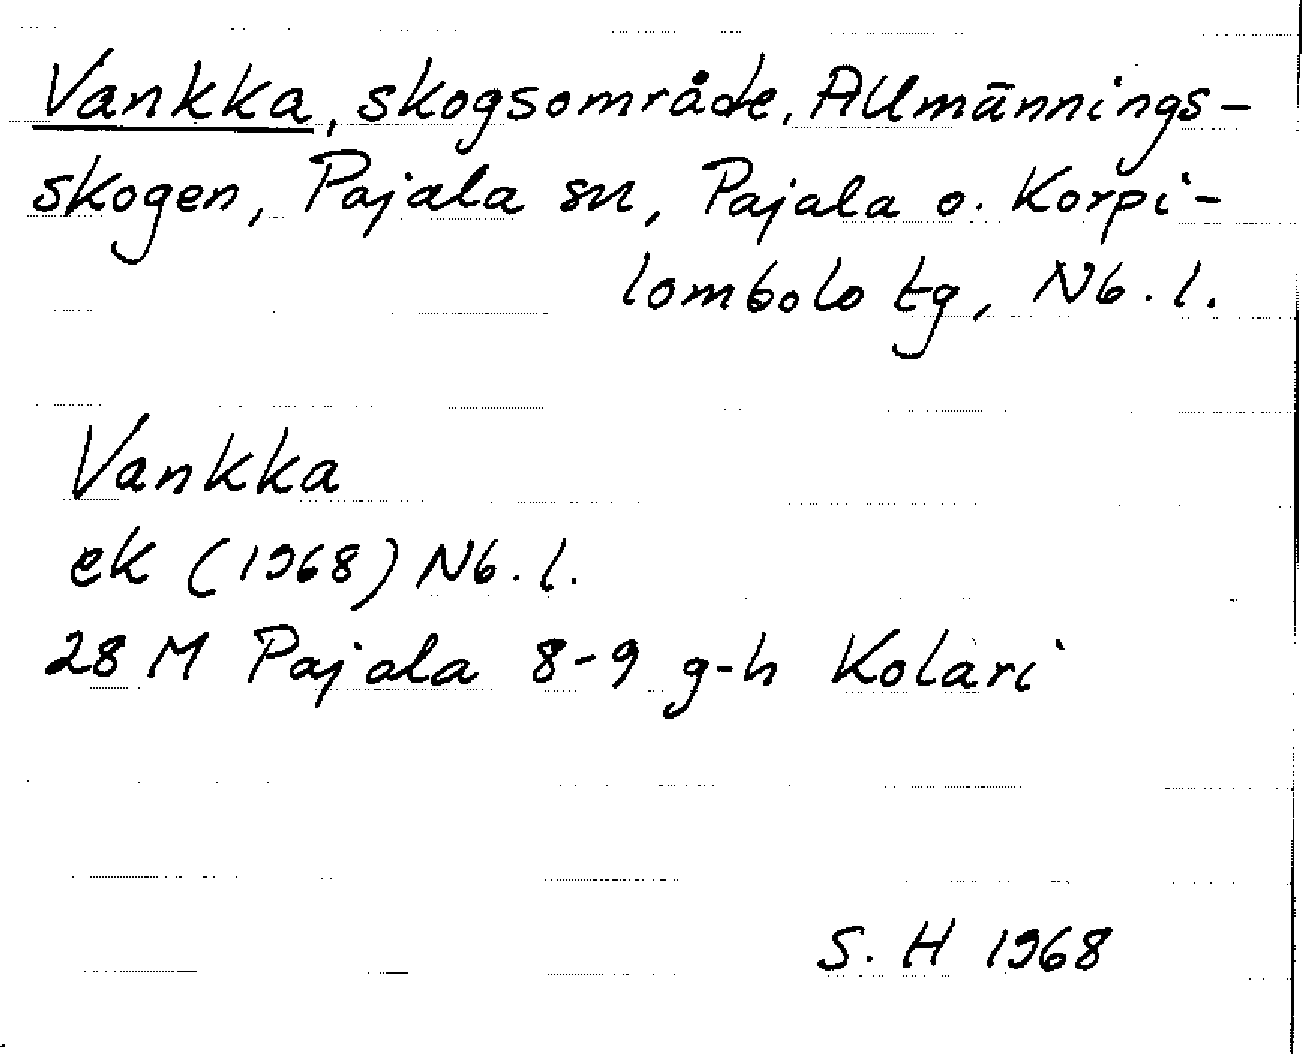 Vankka, skogsområde, Allmännings-
skogen, Pajala sn, Pajala o. Korpi-
lombolo tg, Nb. l.
Vankka
ek (1968) Nb. l.
28 M Pajala 8-9 g-h Kolari
S. H 1968